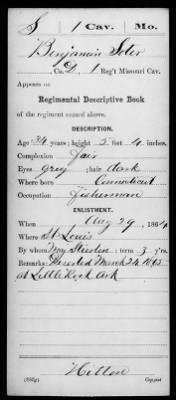 S 1 Cav. Mo.
Benjamin Soter
Co. D, 1 Reg't Missouri Cav.
Appears on
Regimental Descriptive Book
of the regiment named above.
DESCRIPTION.
Age 34 years; height 5 feet 4 inches.
Complexion Fair
Eyes Grey; hair dark
Where born Connecticut
Occupation Fisherman
ENLISTMENT.
When Aug 29, 186
Where St Louis
By whom ; term 3 y'rs.
Remarks: Deserted March 24 1865
at Little Rock Ark
Hilton
Copyist